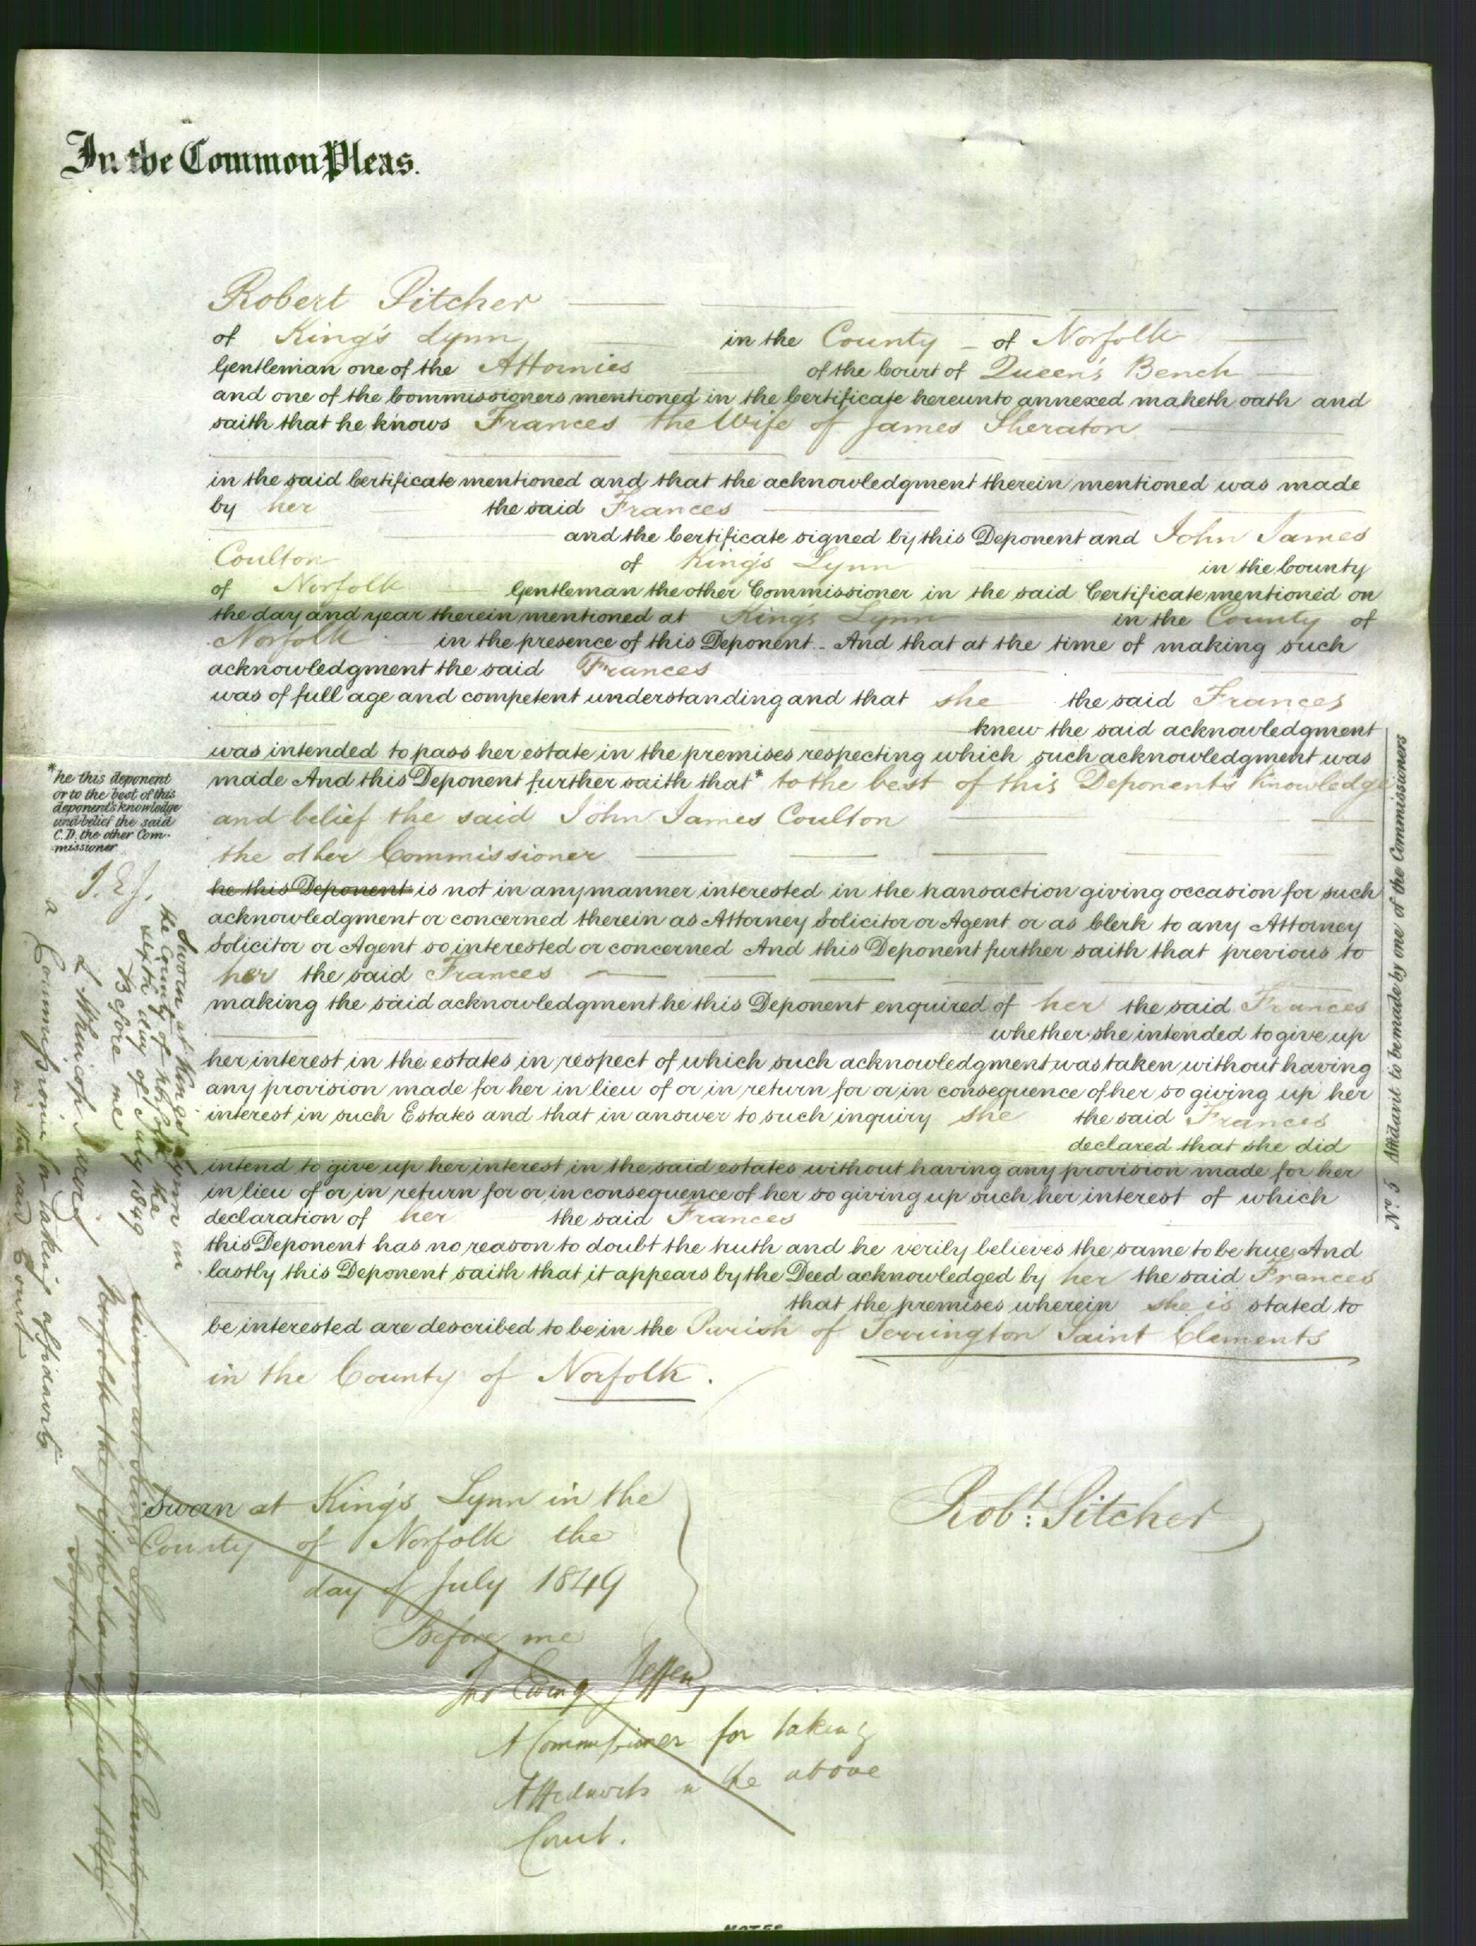 In the Common Pleas.
Robert Pitcher
of King's Lynn in the County of Norfolk
Gentleman one of the Attornies of the Court of Queen's Bench
and one of the Commissioners mentioned in the Certificate hereunto annexed maketh oath and
saith that he knows Frances the Wife of James Sheraton
in the said Certificate mentioned and that the acknowledgment therein mentioned was made
by her the said Frances
and the Certificate signed by this Deponent and John James
Coulton of King's Lynn in the County
of Norfolk Gentleman the other Commissioner in the said Certificate mentioned on
the day and year therein mentioned at King's Lynn in the County of
Norfolk in the presence of this Deponent.. And that at the time of making such
acknowledgment the said Frances
was of full age and competent understanding and that she the said Frances
knew the said acknowledgment
was intended to pass her estate in the premises respecting which such acknowledgment was
made And this Deponent further saith that* to the best of this Deponent's knowledge
and belief the said John James Coulton
the other Commissioner
he this Deponent is not in any manner interested in the transaction giving occasion for such
acknowledgment or concerned therein as Attorney Solicitor or Agent or as Clerk to any Attorney
Solicitor or Agent so interested or concerned And this Deponent further saith that previous to
her the said Frances
making the said acknowledgment he this Deponent enquired of her the said Frances
whether she intended to give up
her interest in the estates in respect of which such acknowledgment was taken without having
any provision made for her in lieu of or in return for or in consequence of her so giving up her
interest in such Estates and that in answer to such inquiry she the said Frances
declared that she did
intend to give up her interest in the said estates without having any provision made for her
in lieu of or in return for or in consequence of her so giving up such her interest of which
declaration of her the said Frances
this Deponent has no reason to doubt the truth and he verily believes the same to be true And
lastly this Deponent saith that it appears by the Deed acknowledged by her the said Frances
that the premises wherein she is stated to
be interested are described to be in the Parish of Terrington Saint Clements
in the County of Norfolk.
*he this deponent
or to the best of this
deponent's knowledge
and belief the said
C.D. the other Com-
missioner
J. E. J.
Sworn at Kings Lynn in
the County of Norfolk the
sixth day of July 1849
Before me
a Commissioner for taking affidavits
in the said Court
Sworn at Kings Lynn in the County of
Norfolk the fifth day of July 1849
Before me
Sworn at King's Lynn in the
County of Norfolk the
day of July 1849
Before me
Jno Ewing Jeffery
A Commissioner for taking
Affidavits in the above
Court.
Robt. Pitcher
No. 5 Affidavit to be made by one of the Commissioners
NOTES